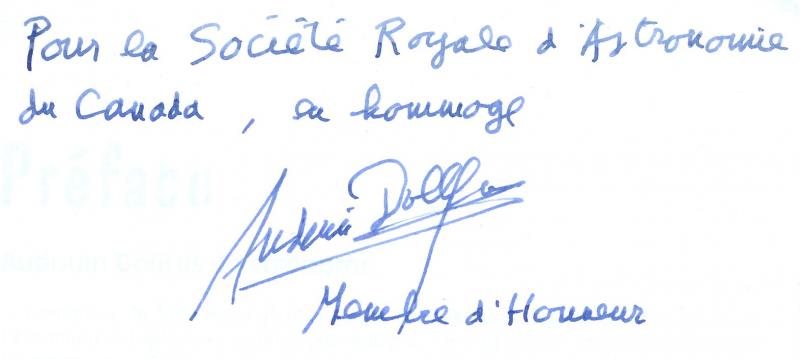 Pour la Société Royale d'Astronomie
du Canada, en hommage
Audouin Dollfus
Membre d'Honneur
Préface
Audouin Dollfus